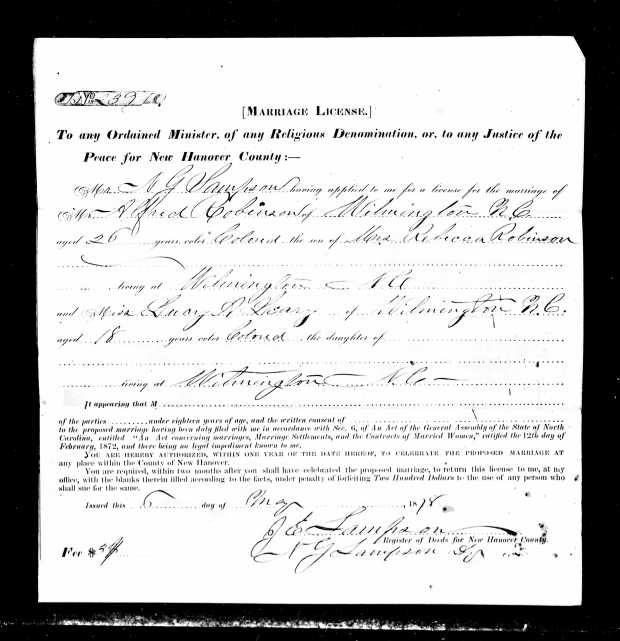 [MARRIAGE LICENSE.]
To any Ordained Minister, of any Religious Denomination, or, to any Justice of the
Peace for New Hanover County:—
Mr. N G Sampson having applied to me for a license for the marriage of
Mr. Alfred Robinson of Wilmington N.C.
aged 26 years color Colored the son of Mrs Rebecca Robinson
living at Wilmington N C
and Miss Lucy of Wilmington N.C.
aged 18 years color Colored the daughter of
living at Wilmington N.C.
It appearing that M
of the parties under eighteen years of age, and the written consent of
to the proposed marriage having been duly filed with me in accordance with Sec. 6, of An Act of the General Assembly of the State of North
Carolina, entitled "An Act concerning marriages, Marriage Settlements, and the Contracts of Married Women," ratified the 12th day of
February, 1872, and there being no legal impediment known to me.
YOU ARE HEREBY AUTHORIZED, WITHIN ONE YEAR OF THE DATE HEREOF, TO CELEBRATE THE PROPOSED MARRIAGE AT
any place within the County of New Hanover.
You are required, within two months after you shall have celebrated the proposed marriage, to return this license to me, at my
office, with the blanks therein filled according to the facts, under penalty of forfeiting Two Hundred Dollars to the use of any person who
shall sue for the same.
Issued this 6 day of May, 1878
J E Sampson
Register of Deeds for New Hanover County.
Fee $ N G Sampson